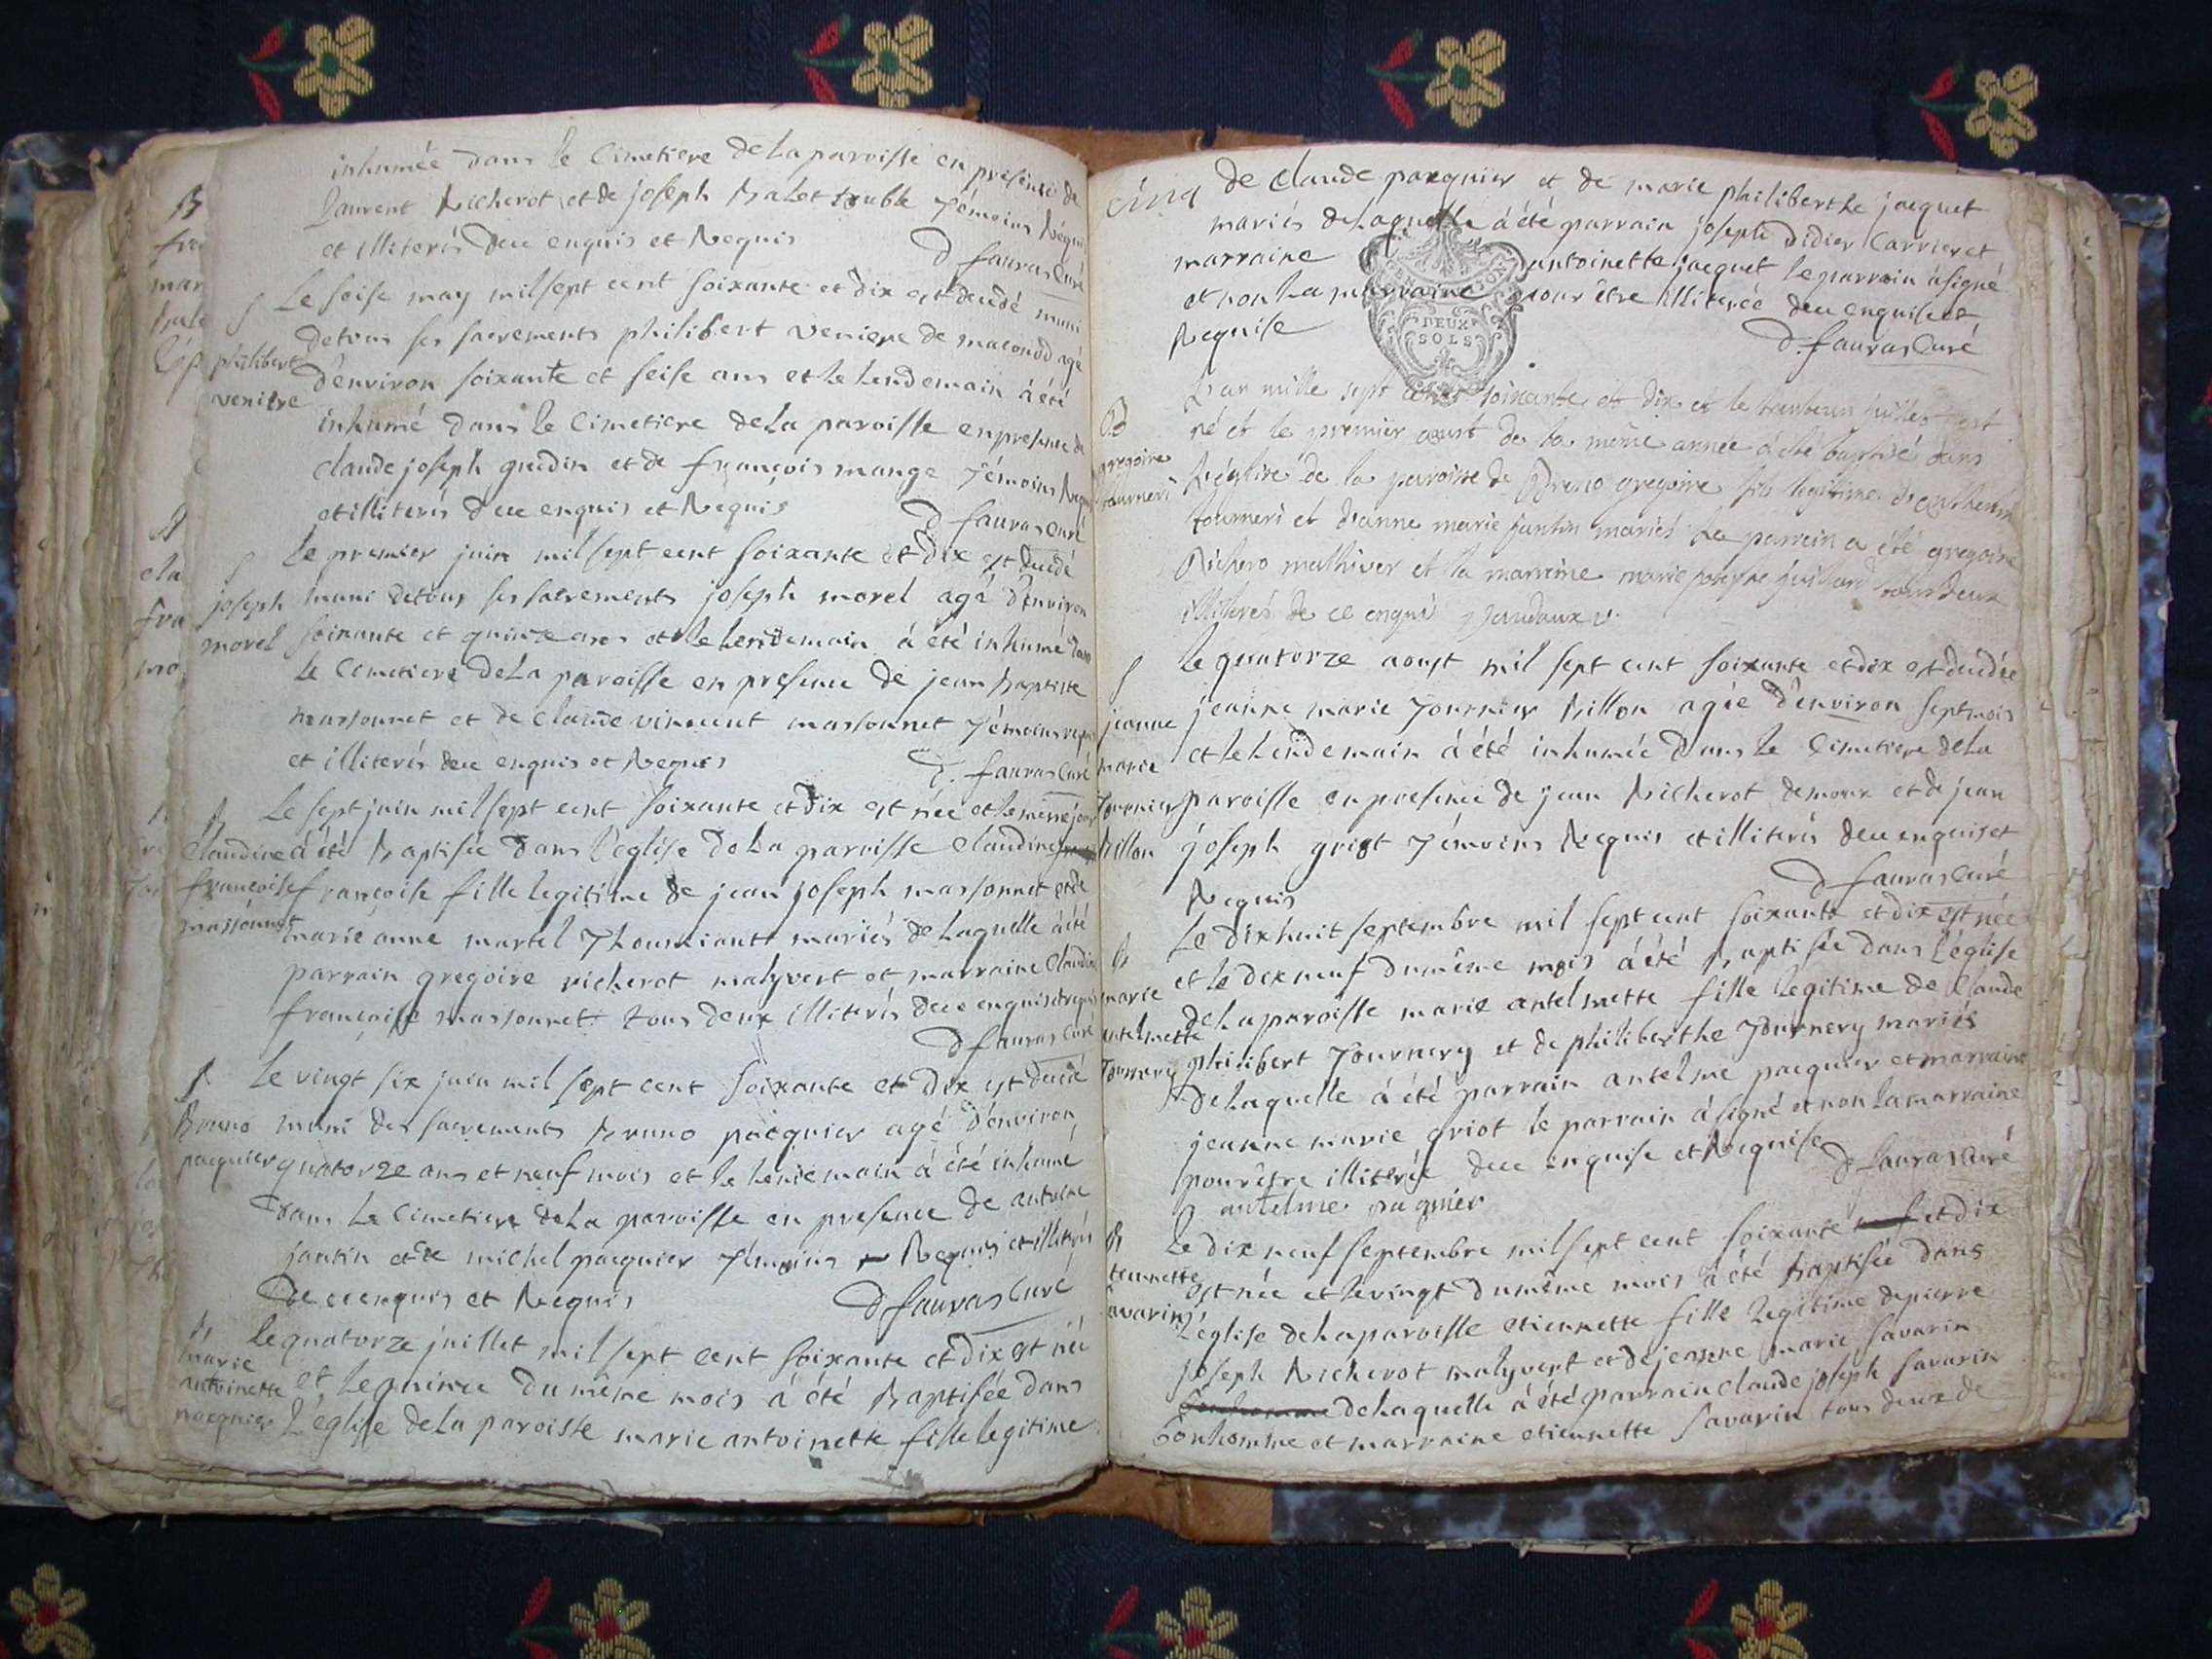 inhumée dans le Cimetiere dela paroisse en presence de
Laurent Richerot et de joseph Balet truble Témoins Requis
et illiterés de ce enquis et Requis
D favras Curé
S Le seise may mil sept cent soixante et dix est decedé muni
philibert
veniere
de tous ses sacrements philibert veniere de maconod agé
d'environ soixante et seise ans et le lendemain à été
inhumé dans le Cimetiere dela paroisse en presence de
claude joseph gredin et de françois mange Témoins Requis
et illiterés de ce enquis et Requis
D favras curé
S Le premier juin mil sept cent soixante et dix est decedé
joseph
morel
muni de tous ses sacrements joseph morel agé d'environ
soixante et quinze ans et le lendemain à été inhumé dans
le Cimetiere dela paroisse en presence de jean Baptiste
massonnet et de claude vincent massonnet Témoins requis
et illiterés de ce enquis et Requis
D. favras Curé
B Le sept juin mil sept cent soixante et dix est née et le même jour
Claudine
françoise
massonnet
à été Baptisée dans l'eglise dela paroisse Claudine
françoise fille legitime de jean joseph massonnet et de
marie anne martel mariés de laquelle à été
parrain gregoire richerot malyvert et marraine Claudine
françoise massonnet tous deux illiterés de ce enquis et requis
D favras Curé
S Le vingt six juin mil sept cent soixante et dix est decedé
Bruno
pacquier
muni des sacrements Bruno pacquier agé d'environ
quatorze ans et neuf mois et le lendemain à été inhumé
dans le Cimetiere dela paroisse en presence de antoine
jantin et de michel pacquier Témoins Requis et illiterés
de ce enquis et Requis
D favras Curé
B Le quatorze juillet mil sept cent soixante et dix est née
marie
antoinette
pacquier
et le quinze du même mois à été Baptisée dans
l'église dela paroisse marie antoinette fille legitime
cinq
de claude pacquier et de marie philiberthe jacquet
mariés de laquelle à été parrain joseph Didier Carrier et
marraine antoinette jacquet le parrain à signé
et non la marraine pour être illiterée de ce enquise et
Requise
D. favras Curé
DEUX
SOLS
L'an mille sept cents soixante et dix et le trente un juillet est
B
gregoire
tourneri
né et le premier aoust de la même année a été baptisé dans
l'église de la paroisse de Breno gregoire fils legitime d'anthelme
tourneri et d'anne marie jantin mariés Le parrein a été gregoire
Richero malhiver et la marreine marie josephe juillard tous deux
illiterés de ce enquis
S Le quatorze aoust mil sept cent soixante et dix est decedée
jeanne
marie
Tournier
Billon
jeanne marie Tournier Billon agée d'environ sept mois
et le lendemain à été inhumée dans le Cimetiere dela
paroisse en presence de jean Richerot demoux et de jean
joseph griot Témoins Requis et illiterés de ce enquis et
Requis
D favras Curé
Le dix huit septembre mil sept cent soixante et dix est née
B
marie
antelmette
Tournery
et le dix neuf du même mois à été Baptisée dans l'église
dela paroisse marie antelmette fille legitime de Claude
philibert Tournery et de philiberthe Tournery mariés
de laquelle à été parrain antelme pacquier et marraine
jeanne marie griot le parrain à signé et non la marraine
pour être illiterée de ce enquise et Requise
D favras Curé
antelme paquier
B Le dix neuf septembre mil sept cent soixante et dix
etiennette
savarin
est née et le vingt du même mois à été Baptisée dans
l'église dela paroisse etiennette fille legitime de pierre
joseph Richerot malyvert et de jeanne marie savarin
de laquelle à été parrain claude joseph savarin
bonhomme et marraine etiennette savarin tous deux de